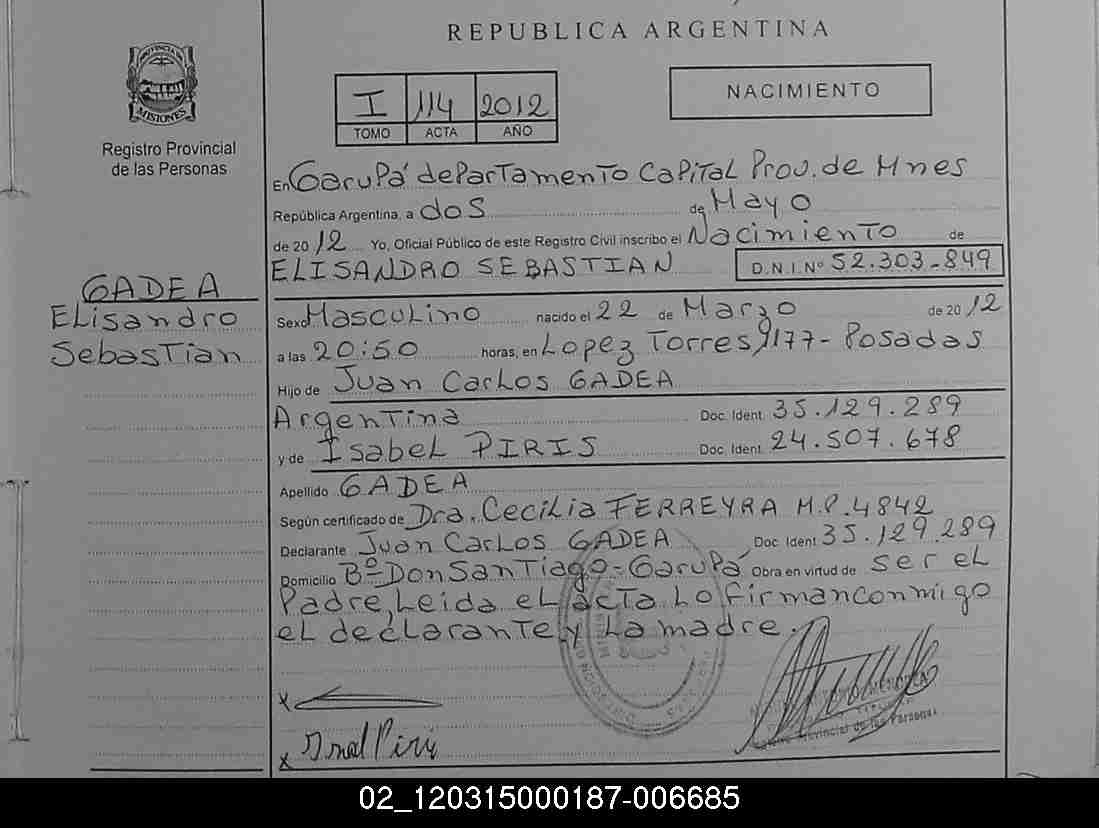 REPUBLICA ARGENTINA
PROVINCIA DE
MISIONES
Registro Provincial
de las Personas
I 114 2012
TOMO ACTA AÑO
NACIMIENTO
En Garupá departamento Capital Prov. de Mnes
República Argentina, a dos de Mayo
de 20 12 Yo, Oficial Público de este Registro Civil inscribo el Nacimiento de
ELISANDRO SEBASTIAN D.N.I. Nº 52.303-849
GADEA
Elisandro
Sebastian
Sexo Masculino nacido el 22 de Marzo de 20 12
a las 20:50 horas, en Lopez Torres 1177- Posadas
Hijo de Juan Carlos GADEA
Argentina Doc. Ident. 35.129.289
y de Isabel PIRIS Doc. Ident. 24.507.678
Apellido GADEA
Según certificado de Dra. Cecilia FERREYRA M.P. 4842
Declarante Juan Carlos GADEA Doc. Ident 35.129.289
Domicilio Bº Don Santiago-Garupá Obra en virtud de ser el
Padre, Leida el acta lo firman conmigo
el declarante y La madre.
x
x
Provincial de las Personas
02_120315000187-006685